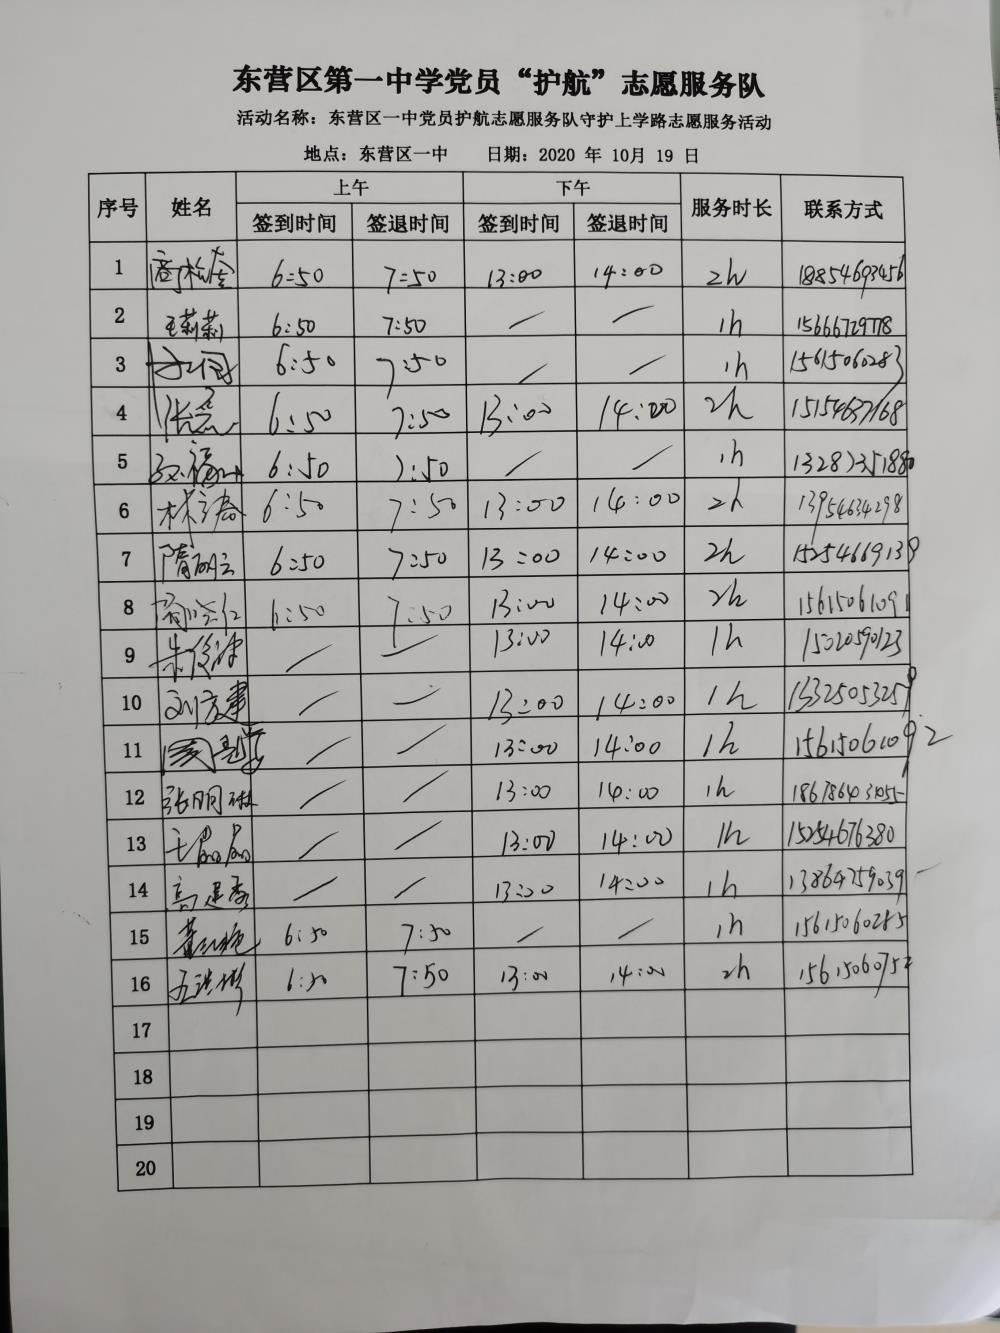 东营区第一中学党员“护航”志愿服务队
活动名称：东营区一中党员护航志愿服务队守护上学路志愿服务活动
地点：东营区一中 日期：2020 年 10月 19 日
序号 姓名 上午 下午 服务时长 联系方式
签到时间 签退时间 签到时间 签退时间
1 6:50 7:50 13:00 14:00 2h 18854693456
2 王莉莉 6:50 7:50 / / 1h 15666729778
3 6:50 7:50 / / 1h 15615060283
4 6:50 7:50 13:00 14:00 2h 15154637168
5 6:50 7:50 / / 1h 13287351880
6 6:50 7:50 13:00 14:00 2h 13954634298
7 6:50 7:50 13:00 14:00 2h 15254669139
8 6:50 7:50 13:00 14:00 2h 15615061091
9 朱俊冲 / / 13:00 14:00 1h 15020590123
10 刘彦建 / / 13:00 14:00 1h 13325053259
11 / / 13:00 14:00 1h 15615061092
12 张明琳 / / 13:00 14:00 1h
13 王晶晶 / / 13:00 14:00 1h 15254676380
14 高建香 / / 13:00 14:00 1h 13864759039
15 6:50 7:50 / / 1h 15615060285
16 6:50 7:50 13:00 14:00 2h 15615060752
17
18
19
20